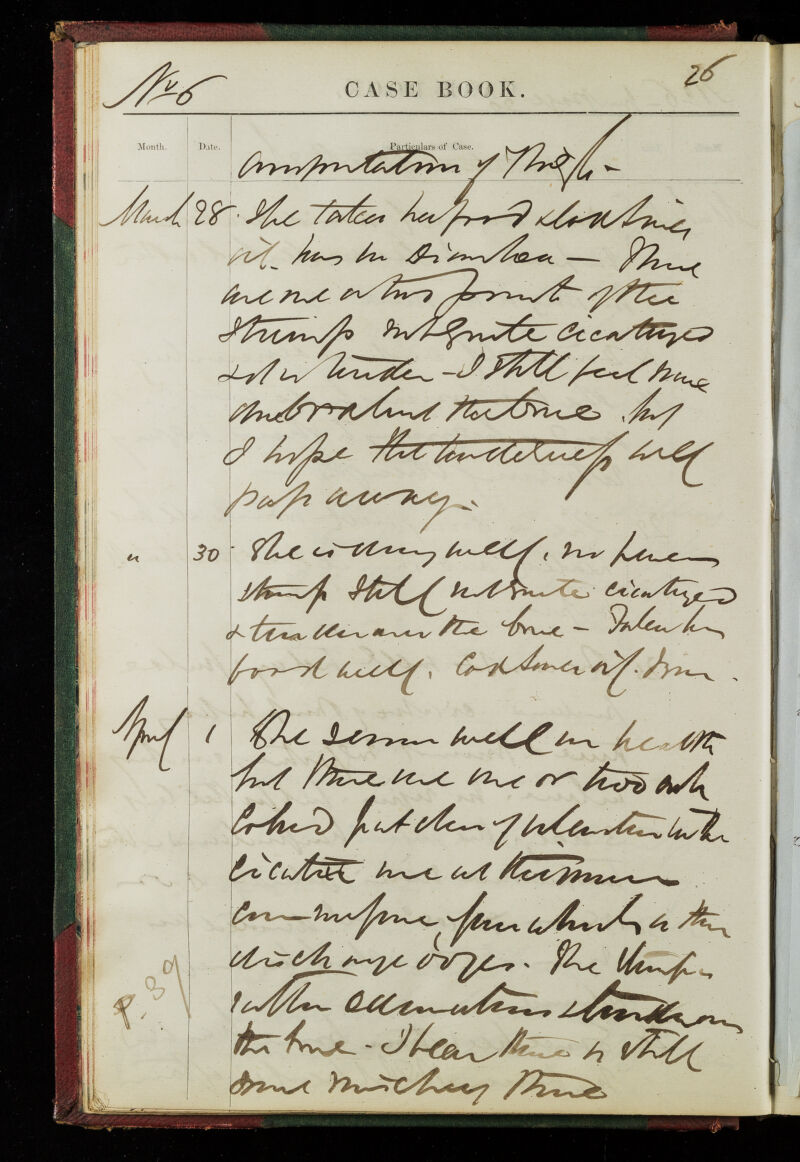 No 6
CASE BOOK.
26
Month. Date. Particulars of Case.
Amputation of Thigh -
March 28. She takes her food & Cod Liver
oil. has no Diarrhea — There
are one or two points of the
Stump not quite cicatrized
& it is tender - I still feel some
about the bone but
I hope the tenderness will
pass away.
" 30. She is doing well, no fever
stump still not quite cicatrized
& tender over the bone - Takes her
food well. Cod Liver oil.
April 1 She seems well in health
but there are one or two
Colored patches of ulceration in the
cicatrix one at the inner
from which a thin
discharge oozes. The Stump is
rather edematous & tender over
the bone - I fear there is still
some mischief there
P. 39